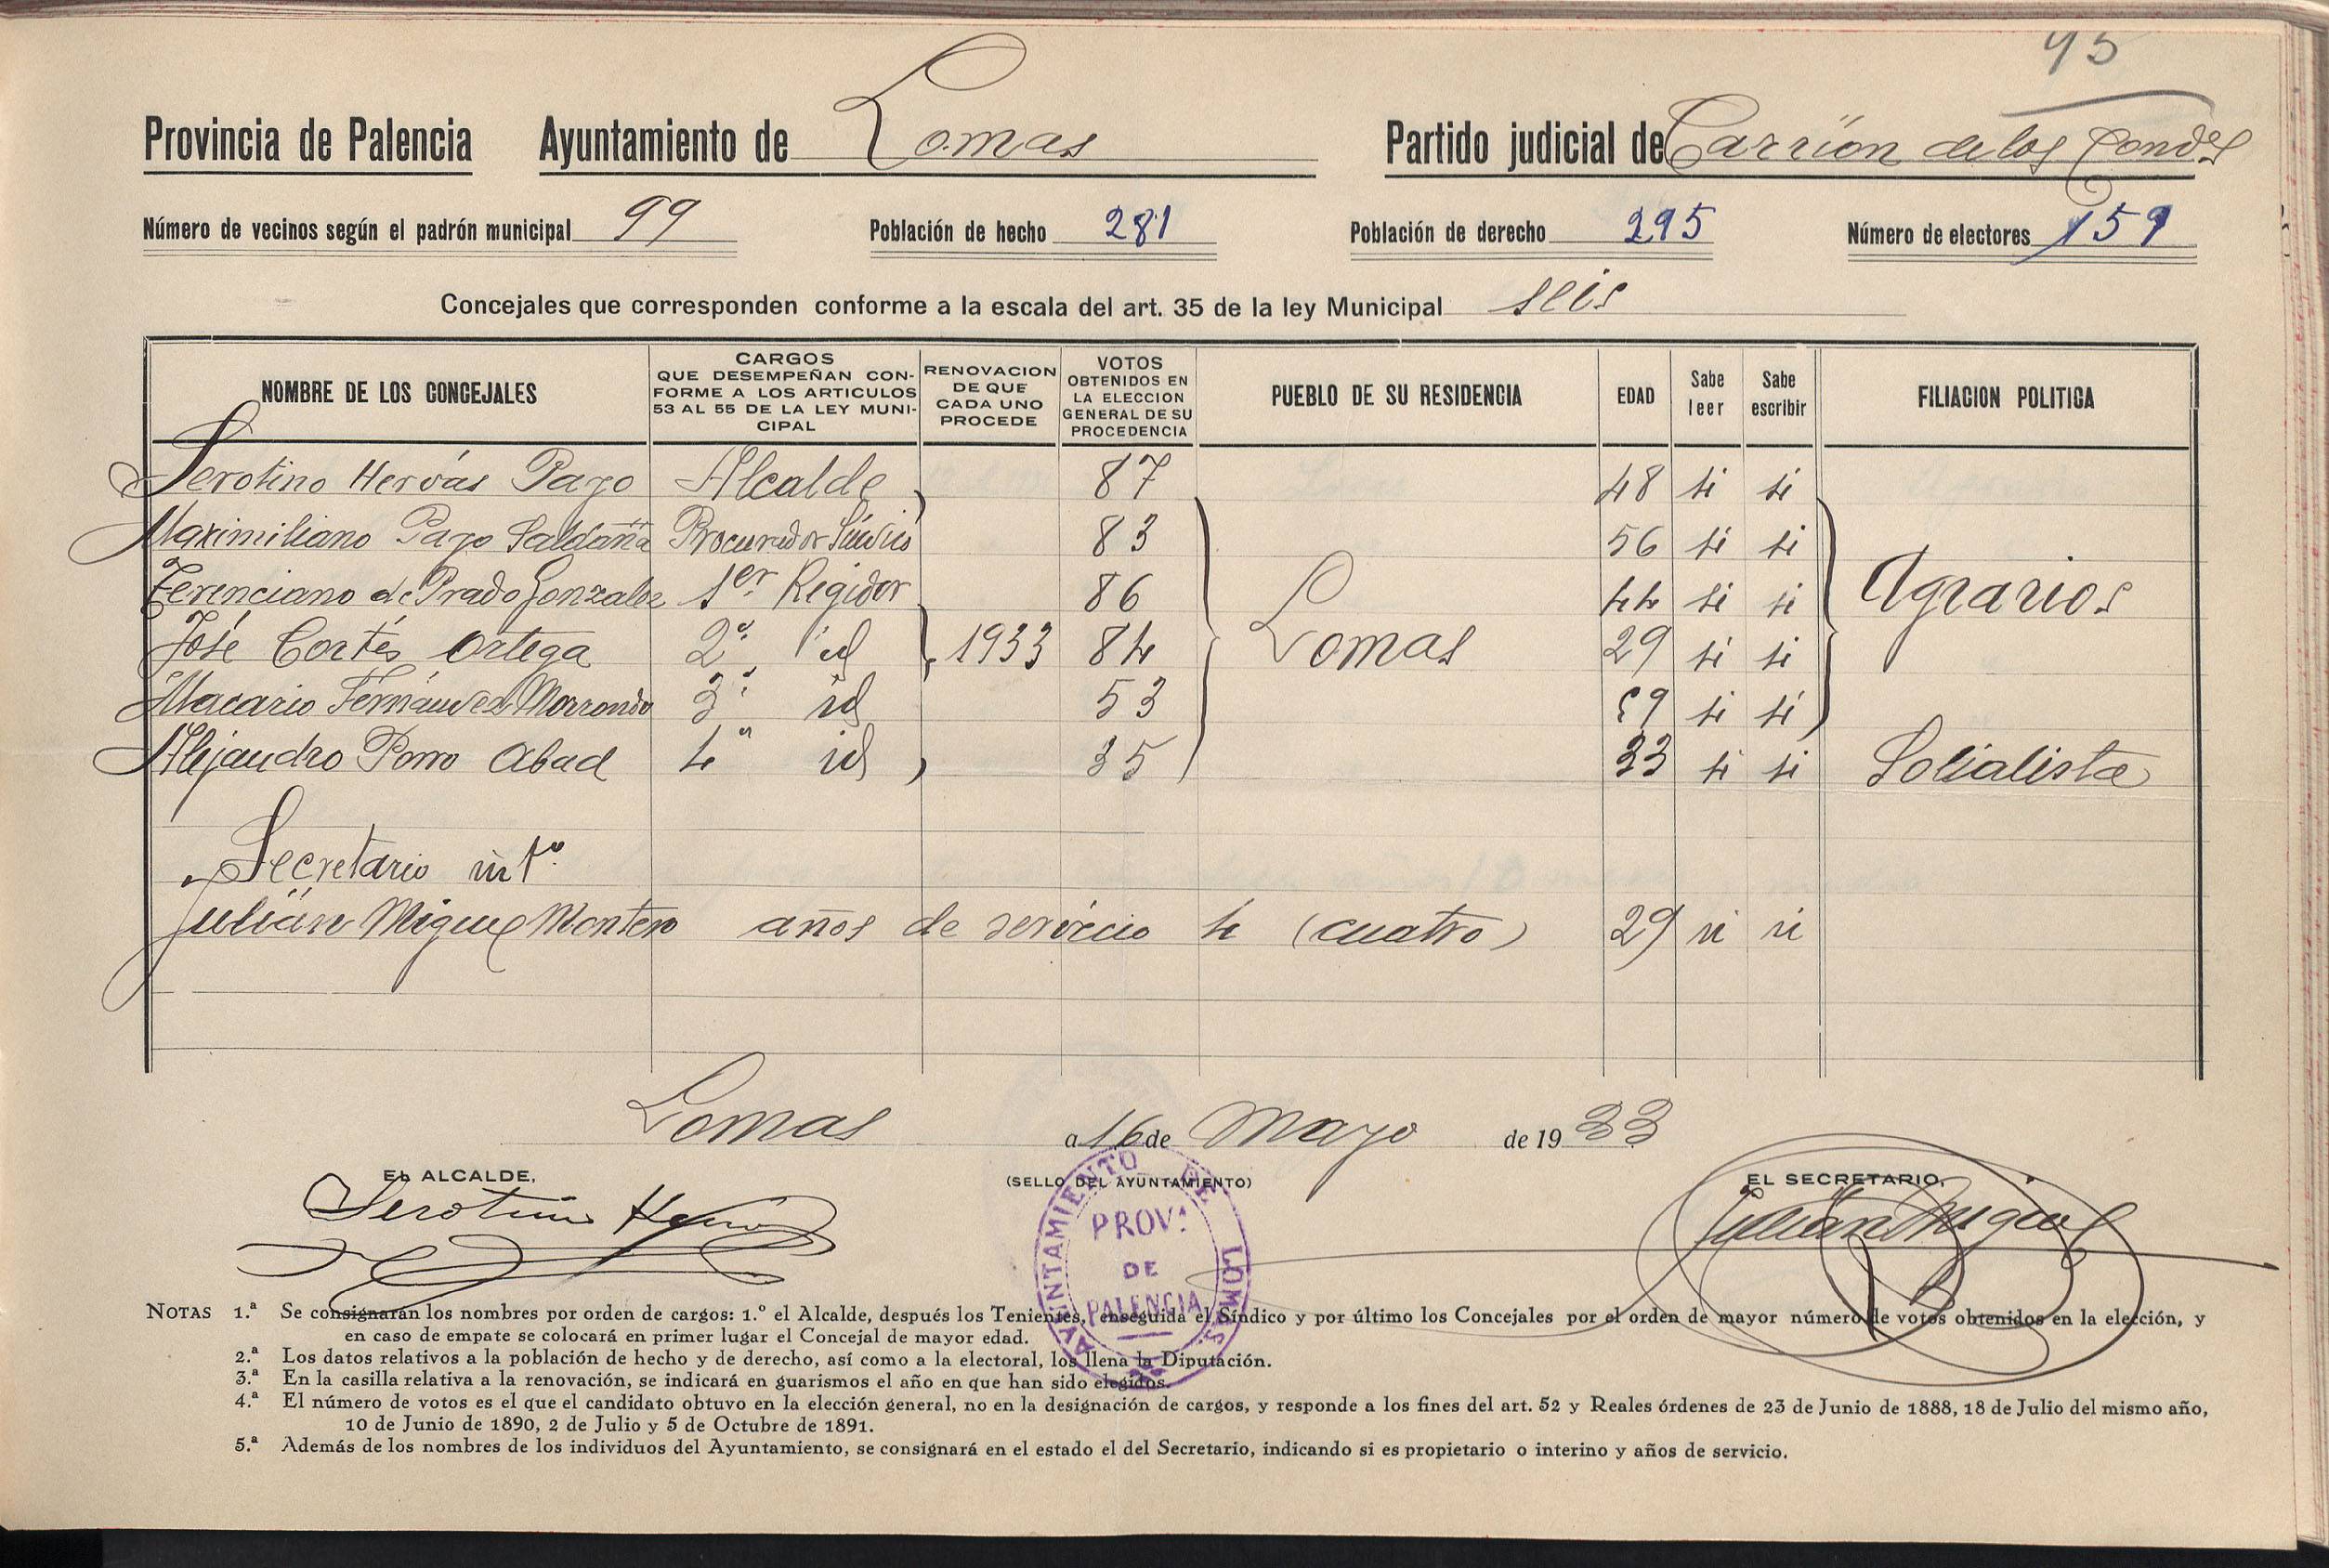 95
Provincia de Palencia Ayuntamiento de Lomas Partido judicial de Carrión de los Condes
Número de vecinos según el padrón municipal 99 Población de hecho 281 Población de derecho 295 Número de electores 159
Concejales que corresponden conforme a la escala del art. 35 de la ley Municipal seis
NOMBRE DE LOS CONCEJALES
CARGOS
QUE DESEMPEÑAN CON-
FORME A LOS ARTICULOS
53 AL 55 DE LA LEY MUNI-
CIPAL
RENOVACION
DE QUE
CADA UNO
PROCEDE
VOTOS
OBTENIDOS EN
LA ELECCION
GENERAL DE SU
PROCEDENCIA
PUEBLO DE SU RESIDENCIA
EDAD
Sabe
leer
Sabe
escribir
FILIACION POLITICA
Serotino Hervás Pazo Alcalde 87 48 si si
Maximiliano Pazo Saldaña Procurador Síndico 83 56 si si
Terenciano de Prado Gonzalez 1er Regidor 86 44 si si Agrarios
José Cortés Ortega 2º id 1933 84 Lomas 29 si si
Macario Fernández Morrondo 3º id 53 59 si si
Alejandro Porro Abad 4º id 35 33 si si Socialista
Secretario intº
Julián Miguel Montero años de servicio 4 (cuatro) 29 si si
Lomas a 16 de Mayo de 1933
EL ALCALDE,
(SELLO DEL AYUNTAMIENTO)
EL SECRETARIO,
Serotino Hervás
Julián Miguel
AYUNTAMIENTO DE LOMAS
PROVª
DE
PALENCIA
NOTAS 1.ª Se consignarán los nombres por orden de cargos: 1.º el Alcalde, después los Tenientes, enseguida el Síndico y por último los Concejales por el orden de mayor número de votos obtenidos en la elección, y
en caso de empate se colocará en primer lugar el Concejal de mayor edad.
2.ª Los datos relativos a la población de hecho y de derecho, así como a la electoral, los llena la Diputación.
3.ª En la casilla relativa a la renovación, se indicará en guarismos el año en que han sido elegidos.
4.ª El número de votos es el que el candidato obtuvo en la elección general, no en la designación de cargos, y responde a los fines del art. 52 y Reales órdenes de 23 de Junio de 1888, 18 de Julio del mismo año,
10 de Junio de 1890, 2 de Julio y 5 de Octubre de 1891.
5.ª Además de los nombres de los individuos del Ayuntamiento, se consignará en el estado el del Secretario, indicando si es propietario o interino y años de servicio.